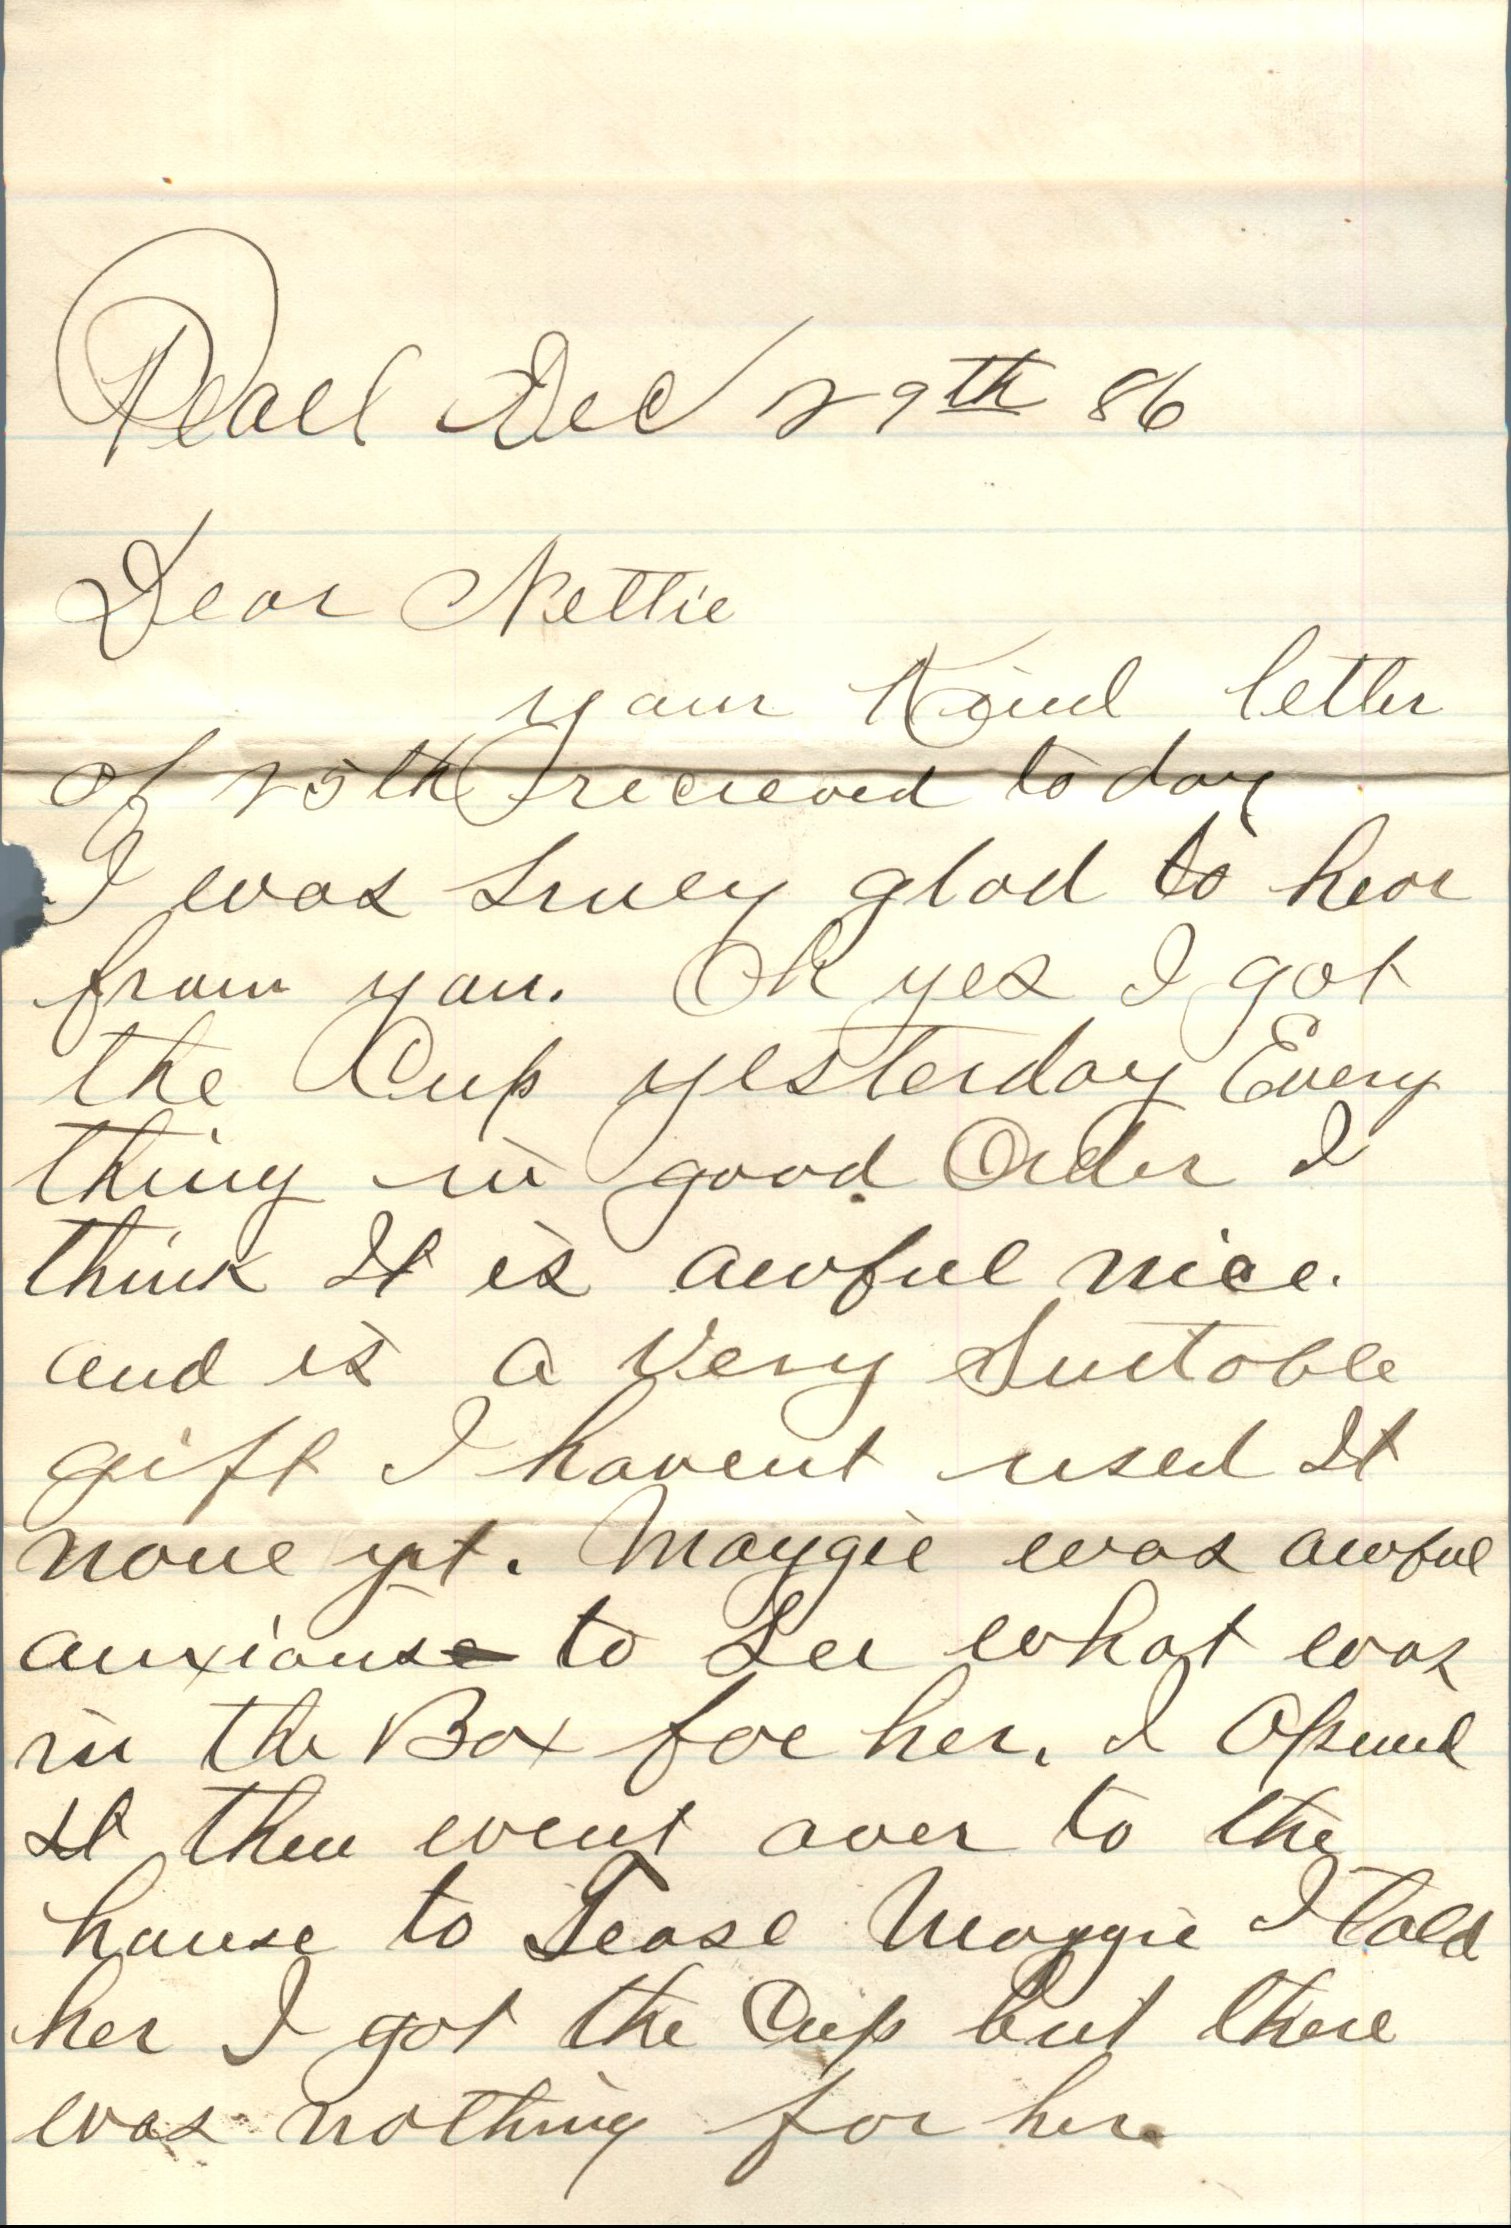 Pearl Dec 29th 86
Dear Nettie
your Kind letter
of 25th recieved to day
I was Truey glad to hear
from you. Oh yes I got
the Cup yesterday Every
thing in good Order I
think It is awful nice.
and is a Very Suitable
gift I havent used It
none yet. Maggie was awful
anxious to See what was
in the Box for her. I Opened
It then went over to the
house to Tease Maggie I told
her I got the Cup but there
was nothing for her.